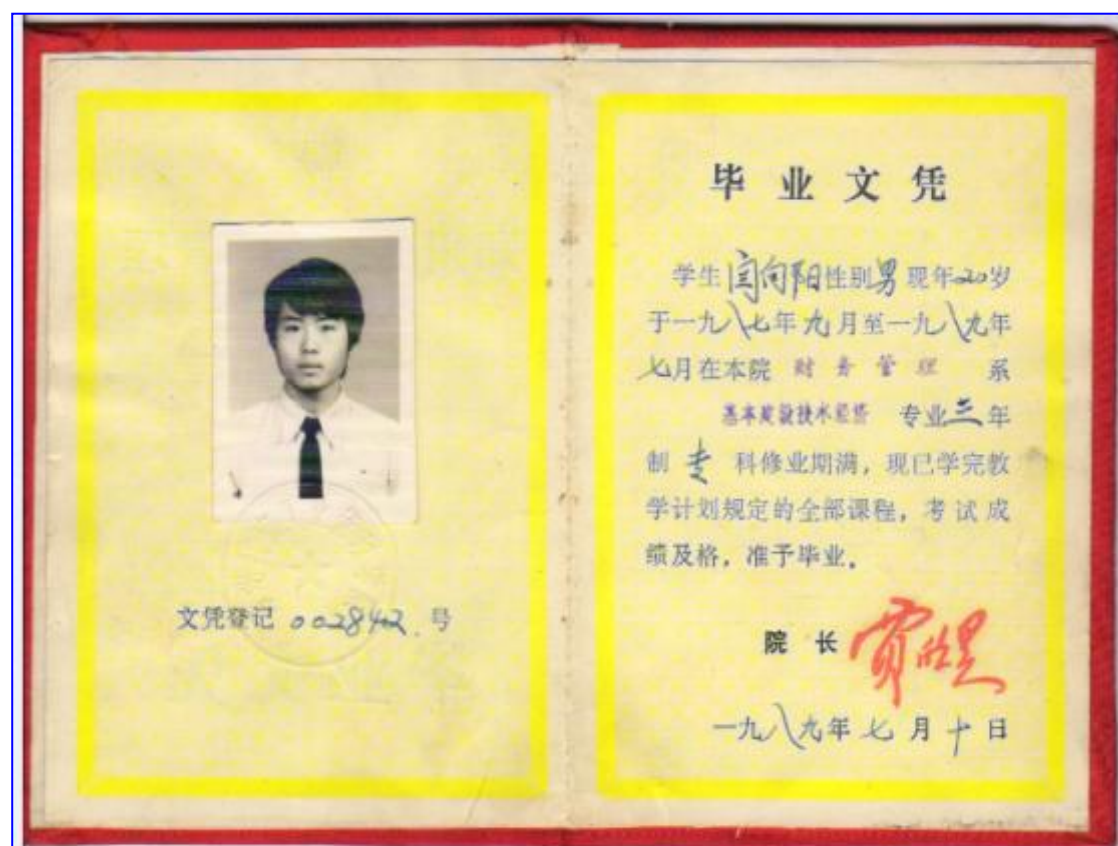 文凭登记 0028422 号
毕业文凭
学生闫向阳性别男现年20岁
于一九八七年九月至一九八九年
七月在本院 财务管理 系
基本建设技术经济 专业三年
制 专 科修业期满，现已学完教
学计划规定的全部课程，考试成
绩及格，准予毕业。
院长
一九八九年七月十日